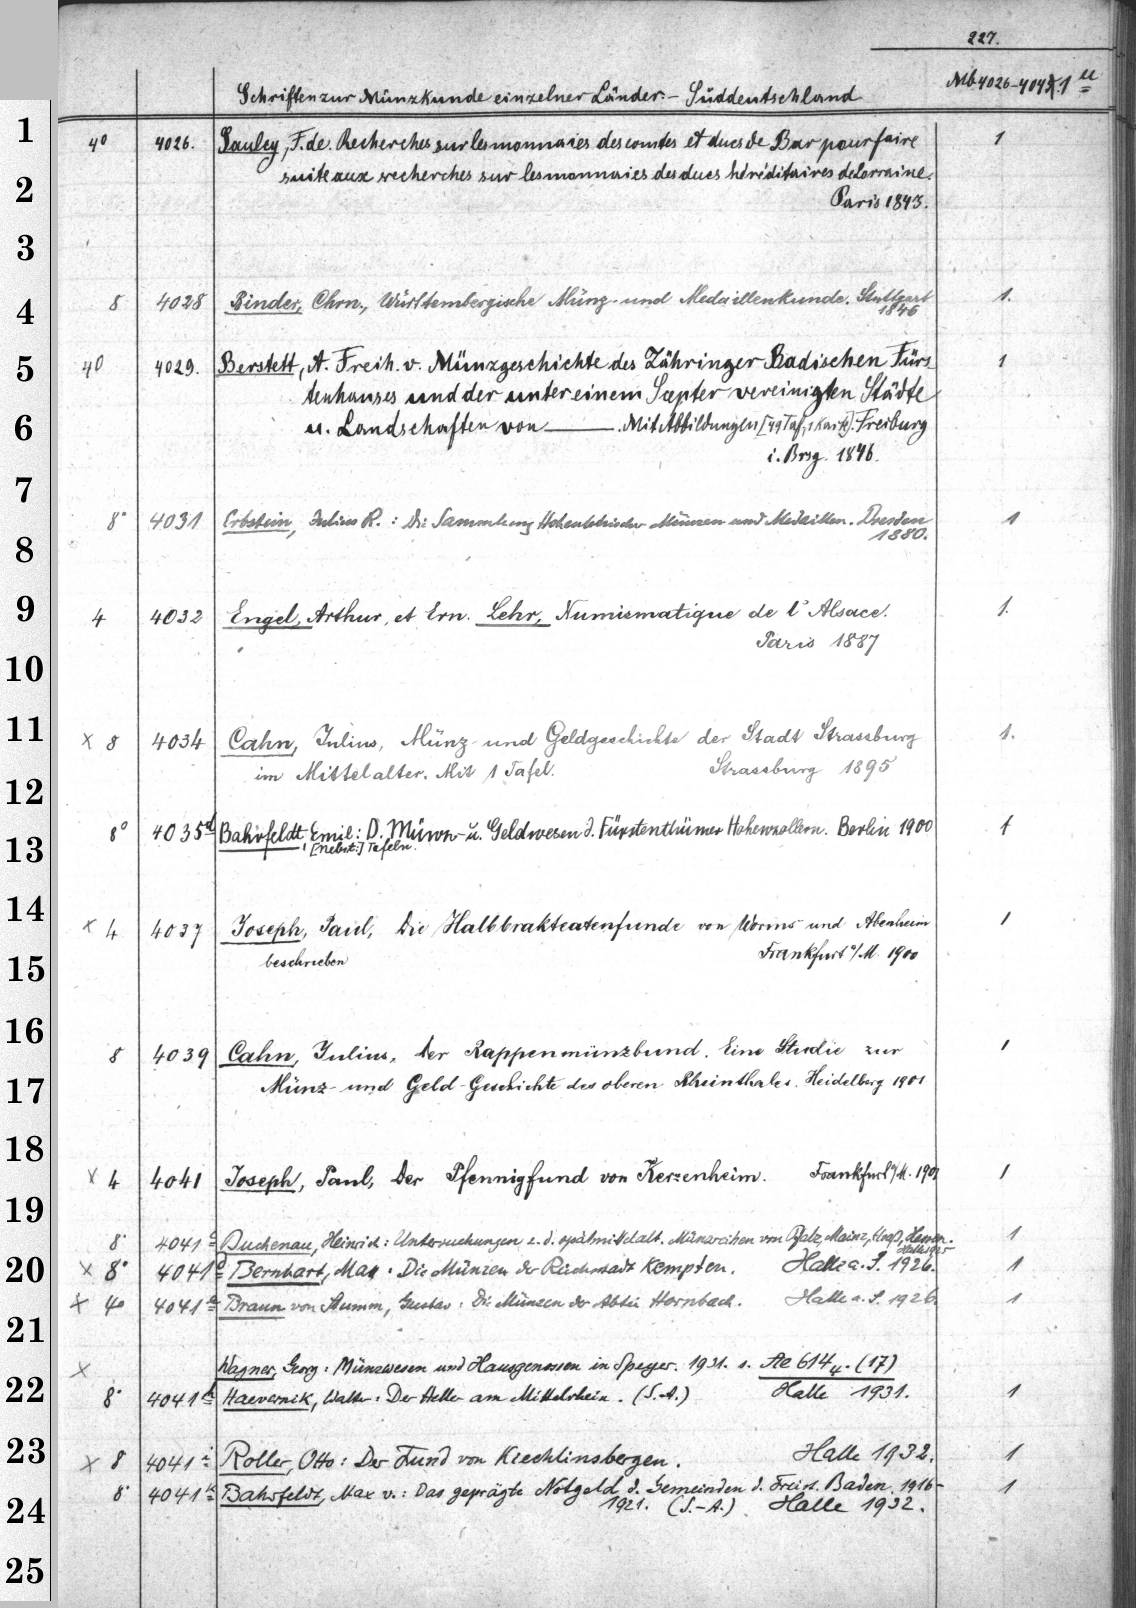 227.
Schriften zur Münzkunde einzelner Länder. - Süddeutschland Mb 4026-404
1 4° 4026. Saulcy, F. de. Recherches sur les monnaies des comtes et ducs de Bar pour faire 1
2 suite aux recherches sur les monnaies des ducs héréditaires de Lorraine.
Paris 1843.
3
4 8 4028 Binder, Chrn., Württembergische Münz- und Medaillenkunde. Stuttgart 1.
1846
5 4° 4029. Berstett, A. Freih. v. Münzgeschichte des Zähringer Badischen Fürs 1
tenhauses und der unter einem Scepter vereinigten Städte
6 u. Landschaften von ——— . Mit Abbildungen [49 Taf, 1 Karte]. Freiburg
i. Brsg. 1846.
7
8° 4031 Erbstein, Julius R.: Die Sammlung Hohenlohischer Münzen und Medaillen. Dresden 1
8 1880.
9 4 4032 Engel, Arthur, et Ern. Lehr, Numismatique de l'Alsace. 1.
10 Paris 1887
11 x 8 4034 Cahn, Julius, Münz- und Geldgeschichte der Stadt Strassburg 1.
12 im Mittelalter. Mit 1 Tafel. Strassburg 1895
13 8° 4035d Bahrfeldt, Emil: D. Münz- u. Geldwesen d. Fürstenthümer Hohenzollern. Berlin 1900 1
[Nebst:] Tafeln.
14 x 4 4037 Joseph, Paul, Die Halbbrakteatenfunde von Worms und Abenheim 1
15 beschrieben Frankfurt a/M. 1900
16
8 4039 Cahn, Julius, Der Rappenmünzbund. Eine Studie zur 1
17 Münz- und Geld-Geschichte des oberen Rheinthales. Heidelberg 1901
18
x 4 4041 Joseph, Paul, Der Pfennigfund von Kerzenheim. Frankfurt a/M. 1901 1
19
8° 4041c Buchenau, Heinrich: Untersuchungen z. d. spätmittelalt. Münzreihen von Pfalz, Mainz, Hessen. 1
20 x 8° 4041d Bernhart, Max: Die Münzen der Reichsstadt Kempten. Halle a. S. 1926. 1
x 4° 4041e Braun von Stumm, Gustav: Die Münzen der Abtei Hornbach. Halle a. S. 1926. 1
21
x Wagner, Georg: Münzwesen und Hausgenossen in Speyer. 1931. s. Ae 614 4. (17)
22 8° 4041 Haevernick, Walter: Der Heller am Mittelrhein. (S.A.) Halle 1931. 1
23 x 8 4041i Roller, Otto: Der Fund von Kiechlinsbergen. Halle 1932. 1
8° 4041k Bahrfeldt, Max v.: Das geprägte Notgeld d. Gemeinden d. Freist. Baden. 1916- 1
24 1921. (S.-A.) Halle 1932.
25